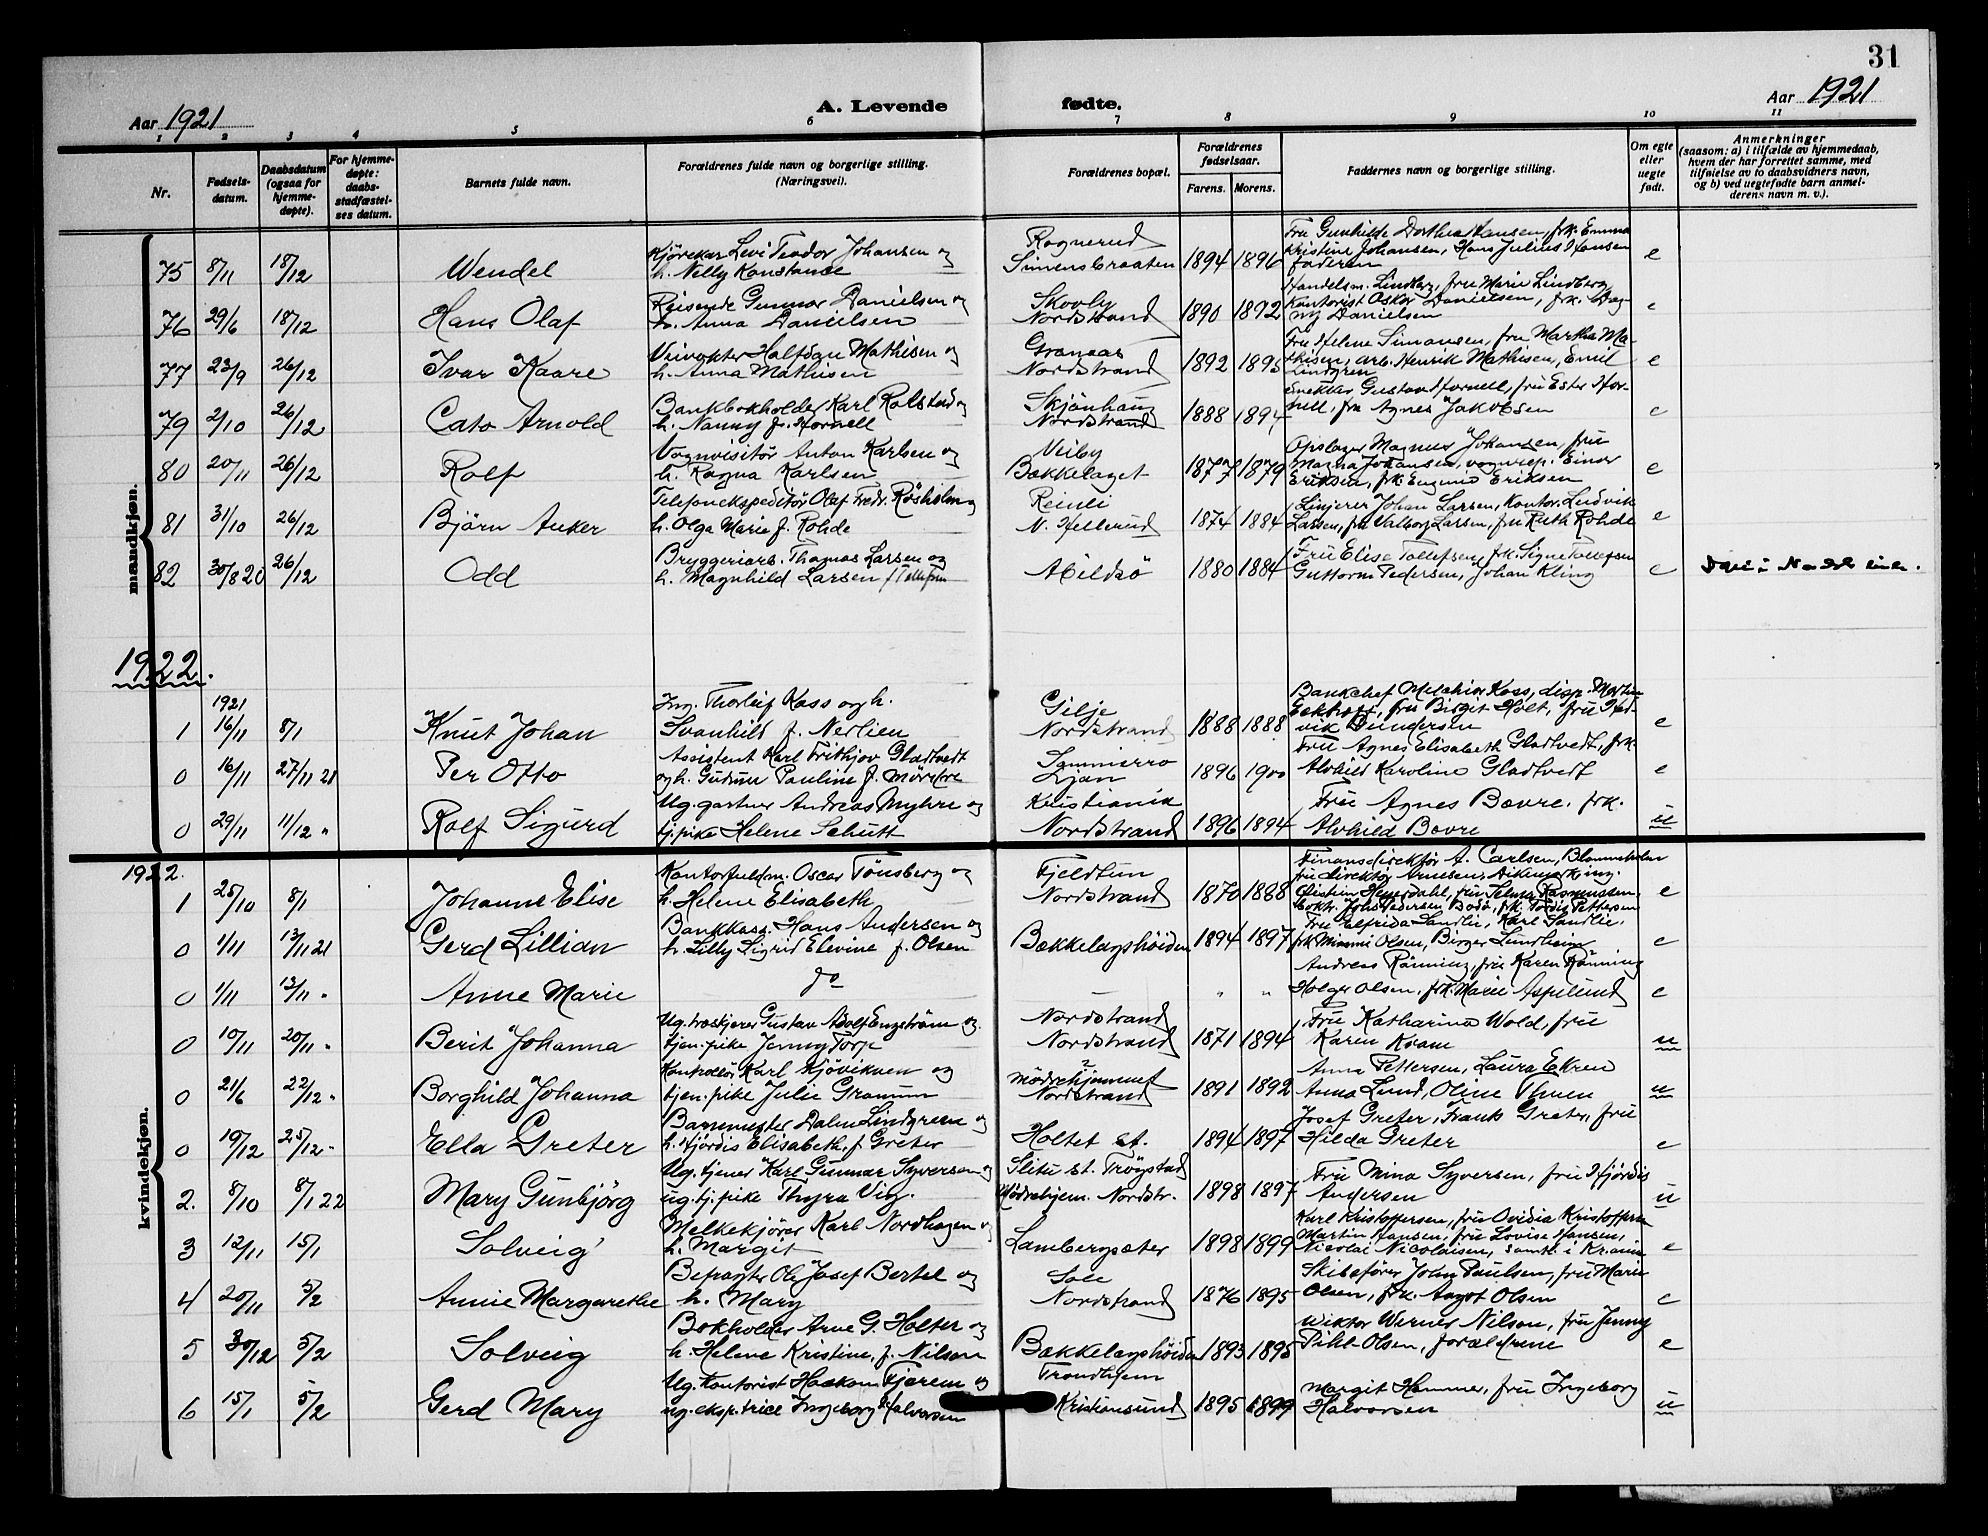 31
Aar 1921
A. Levende fødte.
Aar 1921
1 2 3 4 5 6 7 8 9 10 11
Nr.
Fødsels-
datum.
Daabsdatum
(ogsaa for
hjemme-
døpte).
For hjemme-
døpte:
daabs-
stadfæstel-
ses datum.
Barnets fulde navn.
Forældrenes fulde navn og borgerlige stilling.
(Næringsvei).
Forældrenes bopæl.
Forældrenes
fødselsaar.
Farens. Morens.
Faddernes navn og borgerlige stilling.
Om egte
eller
uegte
født.
Anmerkninger
(saasom: a) i tilfælde av hjemmedaab,
hvem der har forrettet samme, med
tilføielse av to daabsvidners navn,
og b) ved uegtefødte barn anmel-
derens navn m. v.).
mandkjøn.
75 8/11 18/12 Wendel
Kjørekar Levi Teodor Johansen og
h. Nelly Konstance
Rognerud
Simensbraaten 1894 1896
Fru Gunhilde Dorthea Hansen, frk. Emma
Kristine Johansen, Hans Julius Hansen
faderen e
76 29/6 18/12 Hans Olaf
Reisende Gunnar Danielsen og
h. Anna Danielsen
Skovly
Nordstrand 1890 1892
Handelsm. Lindberg, fru Marie Lindberg
Kontorist Oskar Danielsen, frk. Dag-
ny Danielsen e
77 23/9 26/12 Ivar Kaare
Veivokter Halfdan Mathisen og
h. Anna Mathisen
Granaas
Nordstrand 1892 1895
Fru Helene Simonsen, fru Martha Ma-
thisen, arb. Henrik Mathisen, Emil
Lindgren e
79 2/10 26/12 Cato Arnold
Bankbokholder Karl Rolstad og
h. Nanny f. Hornell
Skjønhaug
Nordstrand 1888 1894
Snekker Gustav Hornell, fru Ester Hor-
nell, fru Agnes Jakobsen e
80 20/11 26/12 Rolf
Vognvisitør Anton Karlsen og
h. Ragna Karlsen
Veiby
Bækkelaget 1877 1879
Opslager Magnus Johansen, fru
Magna Johansen, vognrep. Einar
Eriksen, frk. Eugenie Eriksen e
81 31/10 26/12 Bjørn Anker
Telefonekspeditør Olaf Fredr. Røsholm og
h. Olga Marie f. Rohde
Reinli
N. Hellerud 1874 1884
Linjerer Johan Larsen, Kontor. Ludvik
Larsen, frk. Valborg Larsen, fru Ruth Rohde e
82 30/8 20 26/12 Odd
Bryggeriarb. Thomas Larsen og
h. Magnhild Larsen f. Tollefsen
Abildsø 1880 1884
Fru Elise Tollefsen, frk. Signe Tollefsen
Guttorm Pedersen, Johan Kling e
1922.
1921
1 16/11 8/1 Knut Johan
Ing. Thorleif Koss og h.
Svanhild f. Nerlien
Gilje
Nordstrand 1888 1888
Bankchef Melchior Koss, disp. Martin
Eckhoff, fru Birgit Holt, fru Hed-
vik Gundersen e
0 16/11 27/11 21 Per Otto
Assistent Karl Frithjov Gladtvedt
og h. Gudrun Pauline f. Mørdre
Sommerro
Ljan 1896 1900
Fru Agnes Elisabeth Gladtvedt, frk.
Alvhild Karoline Gladtvedt e
0 29/11 11/12 " Rolf Sigurd
Ug. gartner Andreas Myhre og
tj.pike Helene Schutt
Kristiania
Nordstrand 1896 1894
Fru Agnes Bovre, frk.
Alvhild Bovre u
kvindekjøn.
1922.
1 25/10 8/1 Johanne Elise
Kontorfuldm. Oscar Tønsberg og
h. Helene Elisabeth
Fjeldtun
Nordstrand 1870 1888
Finansdirektør A. Carlsen, Blommenholm
fru direktør Arnesen,
e
0 1/11 13/11 21 Gerd Lillian
Bankkass. Hans Andersen og
h. Lilly Sigrid Elevine f. Olsen
Bækkelagshøiden 1894 1897
Fru Elfrida Sandlie, Karl Sandlie,
frk Mimmi Olsen, Birger Lundheim e
0 1/11 13/11 " Anne Marie
do
" "
Andreas Rønning, fru Karen Rønning
Holger Olsen, frk. Marie Asplund e
0 10/11 20/11 " Berit Johanna
Ug. træskjærer Gustav Adolf Engstrøm og
tjen.pike Jenny Torp
Nordstrand
Nordstrand 1871 1894
Fru Katharina Wold, fru
Karen Kvam u
0 21/6 22/12 " Borghild Johanna
Kontrollør Karl Kjøvikven og
tjen.pike Julie Granum
?
Mødrehjemmet
Nordstrand 1891 1892
Anna Pettersen, Laura Ekren
Anna Lund, Oline Thuen u
0 19/12 25/12 " Ella Greter
Banemester Dalin Lindgreen og
h. Hjørdis Elisabeth, f. Greter
Holtet st. 1894 1897
Josef Greter, Frank Greter, fru
Hilda Greter e
2. 8/10 8/1 22 Mary Gunbjørg
Ug. tjener Karl Gunnar Syversen og
ug. tj.pike Thyra Vig.
Slitu st. Trøgstad
Mødrehjem. Nordstr. 1898 1897
Fru Mina Syversen, fru Hjørdis
Andersen u
3 12/11 15/1 Solveig
Melkekjører Karl Nordhagen og
h. Margit
Lambergsæter 1898 1899
Karl Kristoffersen, fru Ovidia Kristoffersen
Martin Hansen, fru Lovise Hansen,
Nicolai Nicolaisen, samtl. i Kr.ania e
4 20/11 5/2 Annie Margarethe
Befragter Ole Josef Bertel og
h. Mary
Sole
Nordstrand 1876 1895
Skibsfører John Paulsen, fru Marie
Olsen, frk. Aagot Olsen e
5 30/12 5/2 Solveig
Bokholder Arne G. Holter og
h. Helene Kristine, f. Nilsen
Bækkelagshøiden 1893 1895
Viktor Werner Nilsen, fru Jenny
Pihl-Olsen, forældrene e
6 15/1 5/2 Gerd Mary
Ug. Kontorist Haakon Fjærem og
ug. eksp.trice Ingeborg Halvorsen
Trondhjem
Kristiansund 1895 1899
Margit Hammer, fru Ingeborg
Halvorsen u